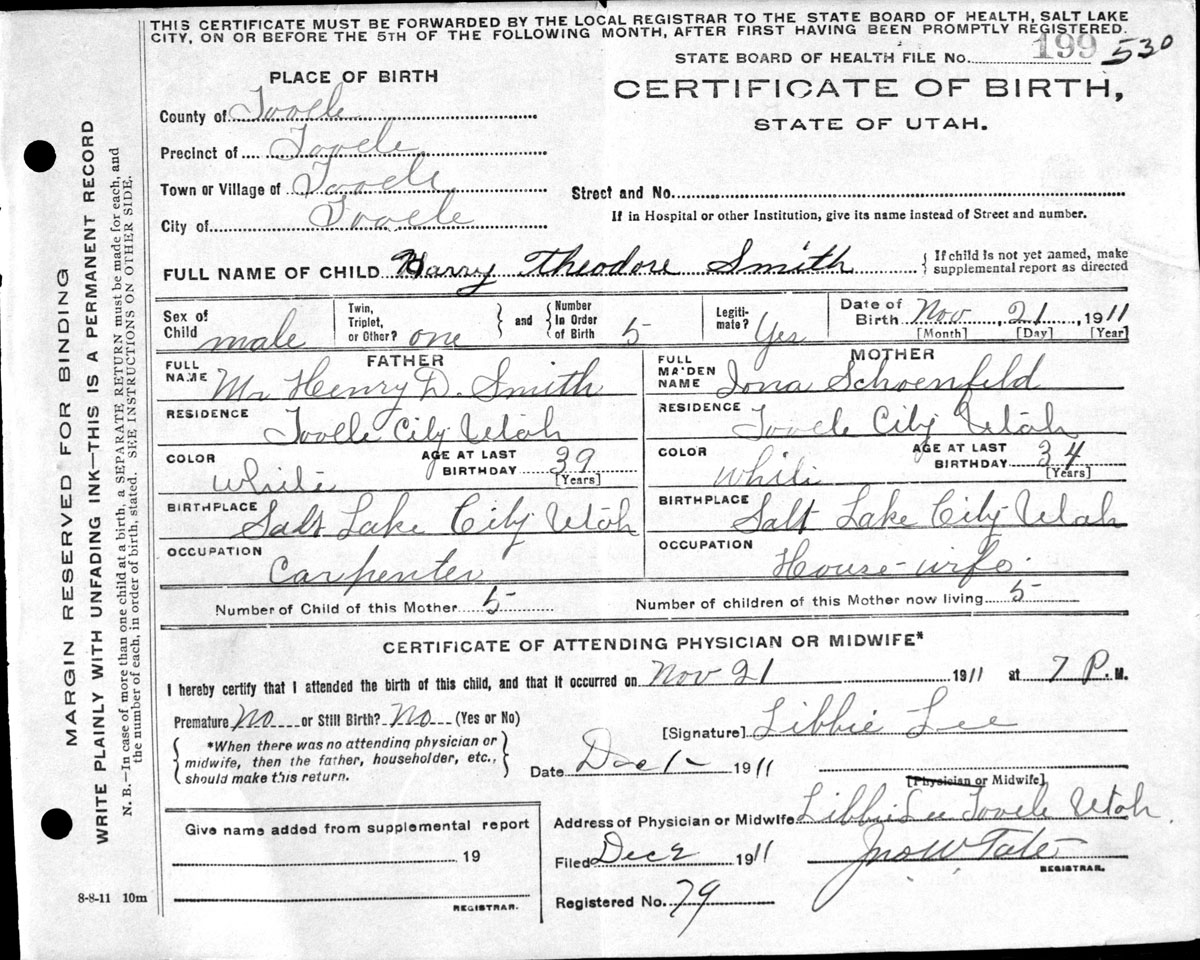 THIS CERTIFICATE MUST BE FORWARDED BY THE LOCAL REGISTRAR TO THE STATE BOARD OF HEALTH, SALT LAKE
CITY, ON OR BEFORE THE 5TH OF THE FOLLOWING MONTH, AFTER FIRST HAVING BEEN PROMPTLY REGISTERED.
STATE BOARD OF HEALTH FILE No. 199 530
PLACE OF BIRTH
CERTIFICATE OF BIRTH,
STATE OF UTAH.
County of Tooele
Precinct of Tooele
Town or Village of Tooele
Street and No.
City of Tooele
If in Hospital or other Institution, give its name instead of Street and number.
FULL NAME OF CHILD Harry Theodore Smith { If child is not yet named, make
supplemental report as directed
Sex of Child male Twin, Triplet, or Other? one } and { Number In Order of Birth 5 Legiti-mate? Yes Date of Birth Nov 21, 1911
[Month] [Day] [Year]
FATHER
FULL NAME Mr Henry D. Smith
RESIDENCE Tooele City Utah
COLOR white AGE AT LAST BIRTHDAY 39 [Years]
BIRTHPLACE Salt Lake City Utah
OCCUPATION Carpenter
MOTHER
FULL MAIDEN NAME Iona Schoenfeld
RESIDENCE Tooele City Utah
COLOR White AGE AT LAST BIRTHDAY 34 [Years]
BIRTHPLACE Salt Lake City Utah
OCCUPATION House-wife
Number of Child of this Mother 5 Number of children of this Mother now living 5
CERTIFICATE OF ATTENDING PHYSICIAN OR MIDWIFE*
I hereby certify that I attended the birth of this child, and that it occurred on Nov 21 1911 at 7 P. M.
Premature No or Still Birth? No (Yes or No)
[Signature] Libbie Lee
{ *When there was no attending physician or
midwife, then the father, householder, etc.,
should make this return. }
Date Dec 1- 1911
[Physician or Midwife]
Give name added from supplemental report
19
REGISTRAR.
Address of Physician or Midwife Libbie Lee Tooele Utah.
Filed Dec 2 1911 Jno W Tate
REGISTRAR.
Registered No. 79
8-8-11 10m
MARGIN RESERVED FOR BINDING
WRITE PLAINLY WITH UNFADING INK—THIS IS A PERMANENT RECORD
N. B.—In case of more than one child at a birth, a SEPARATE RETURN must be made for each, and
the number of each, in order of birth, stated. SEE INSTRUCTIONS ON OTHER SIDE.